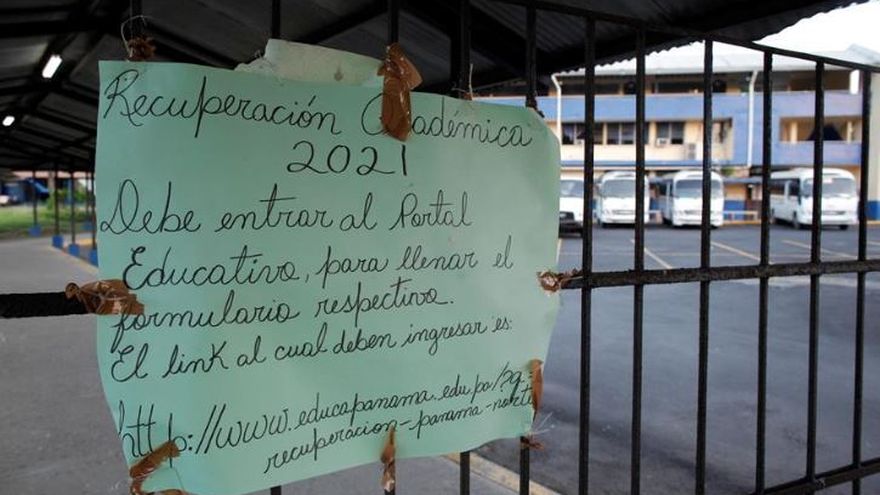 Recuperación Académica
2021
Debe entrar al Portal
Educativo, para llenar el
formulario respectivo.
El link al cual deben ingresar es:
http://www.educapanama.edu.pa/?q=
recuperacion-panama-norte